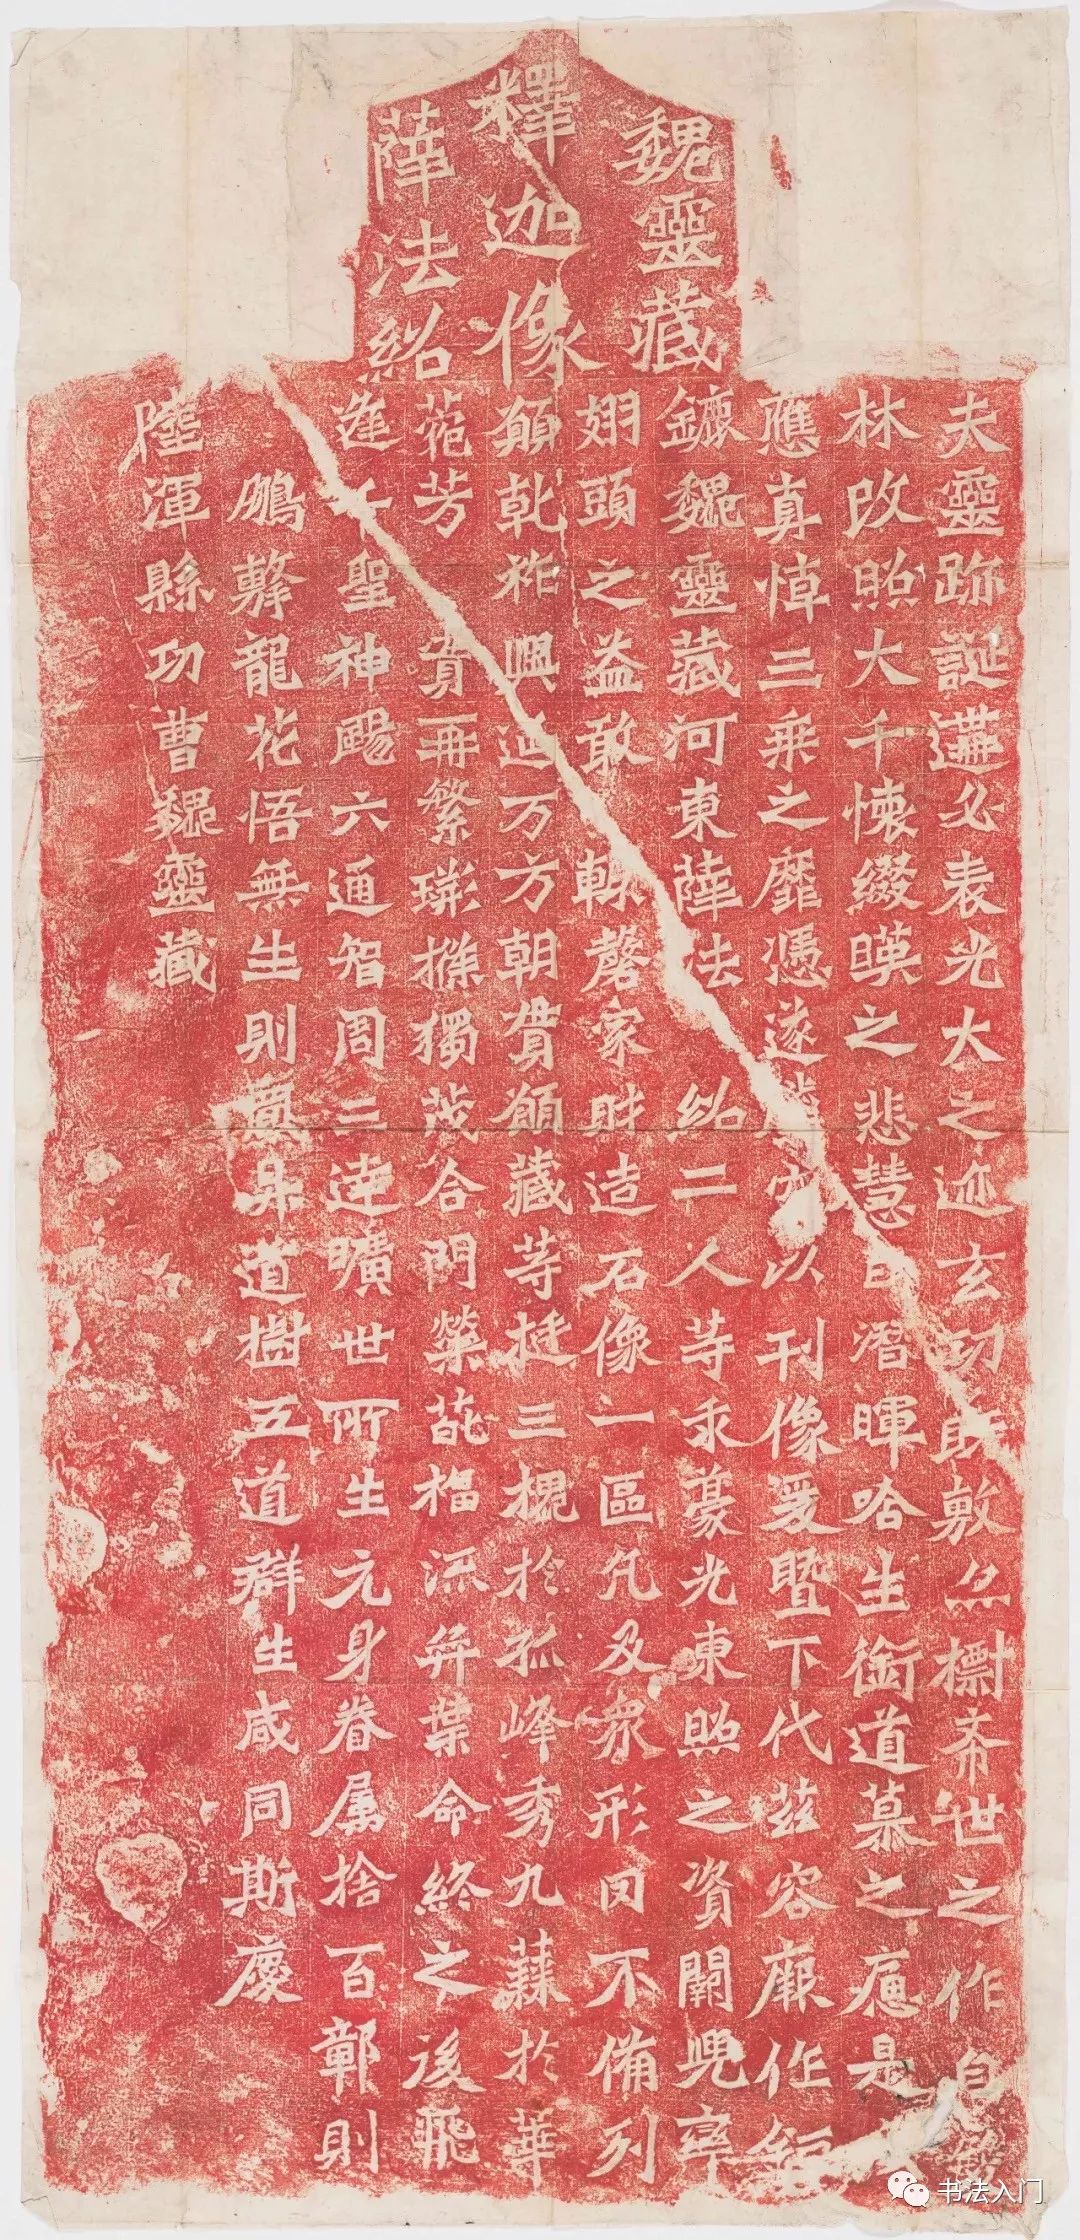 魏靈藏
釋迦像
薛法紹
夫靈跡誕遘必表光大之迹玄功既敷亦標希世之作自
林改照大千懷綴暎之悲慧日潛暉唅生銜道慕之痛是
應真悼三乘之靡憑遂空以刊像爰暨下代茲容厥作鉅
鏕魏靈藏河東薛法紹二人等求豪光東照之資闕兜率
翅頭之益敢輒磬家財造石像一區凡及眾形罔不備列
願乾祚興延万方朝貫願藏等挺三槐於孤峰秀九蕀於華
菀芳實再繁荊條獨茂合門榮葩福流弈葉命終之後飛
逢千聖神颺六通智周三達曠世所生元身眷属捨百鄣則
鵬擊龍花悟無生則鳳昇道樹五道群生咸同斯慶
陸渾縣功曹魏靈藏
书法入门